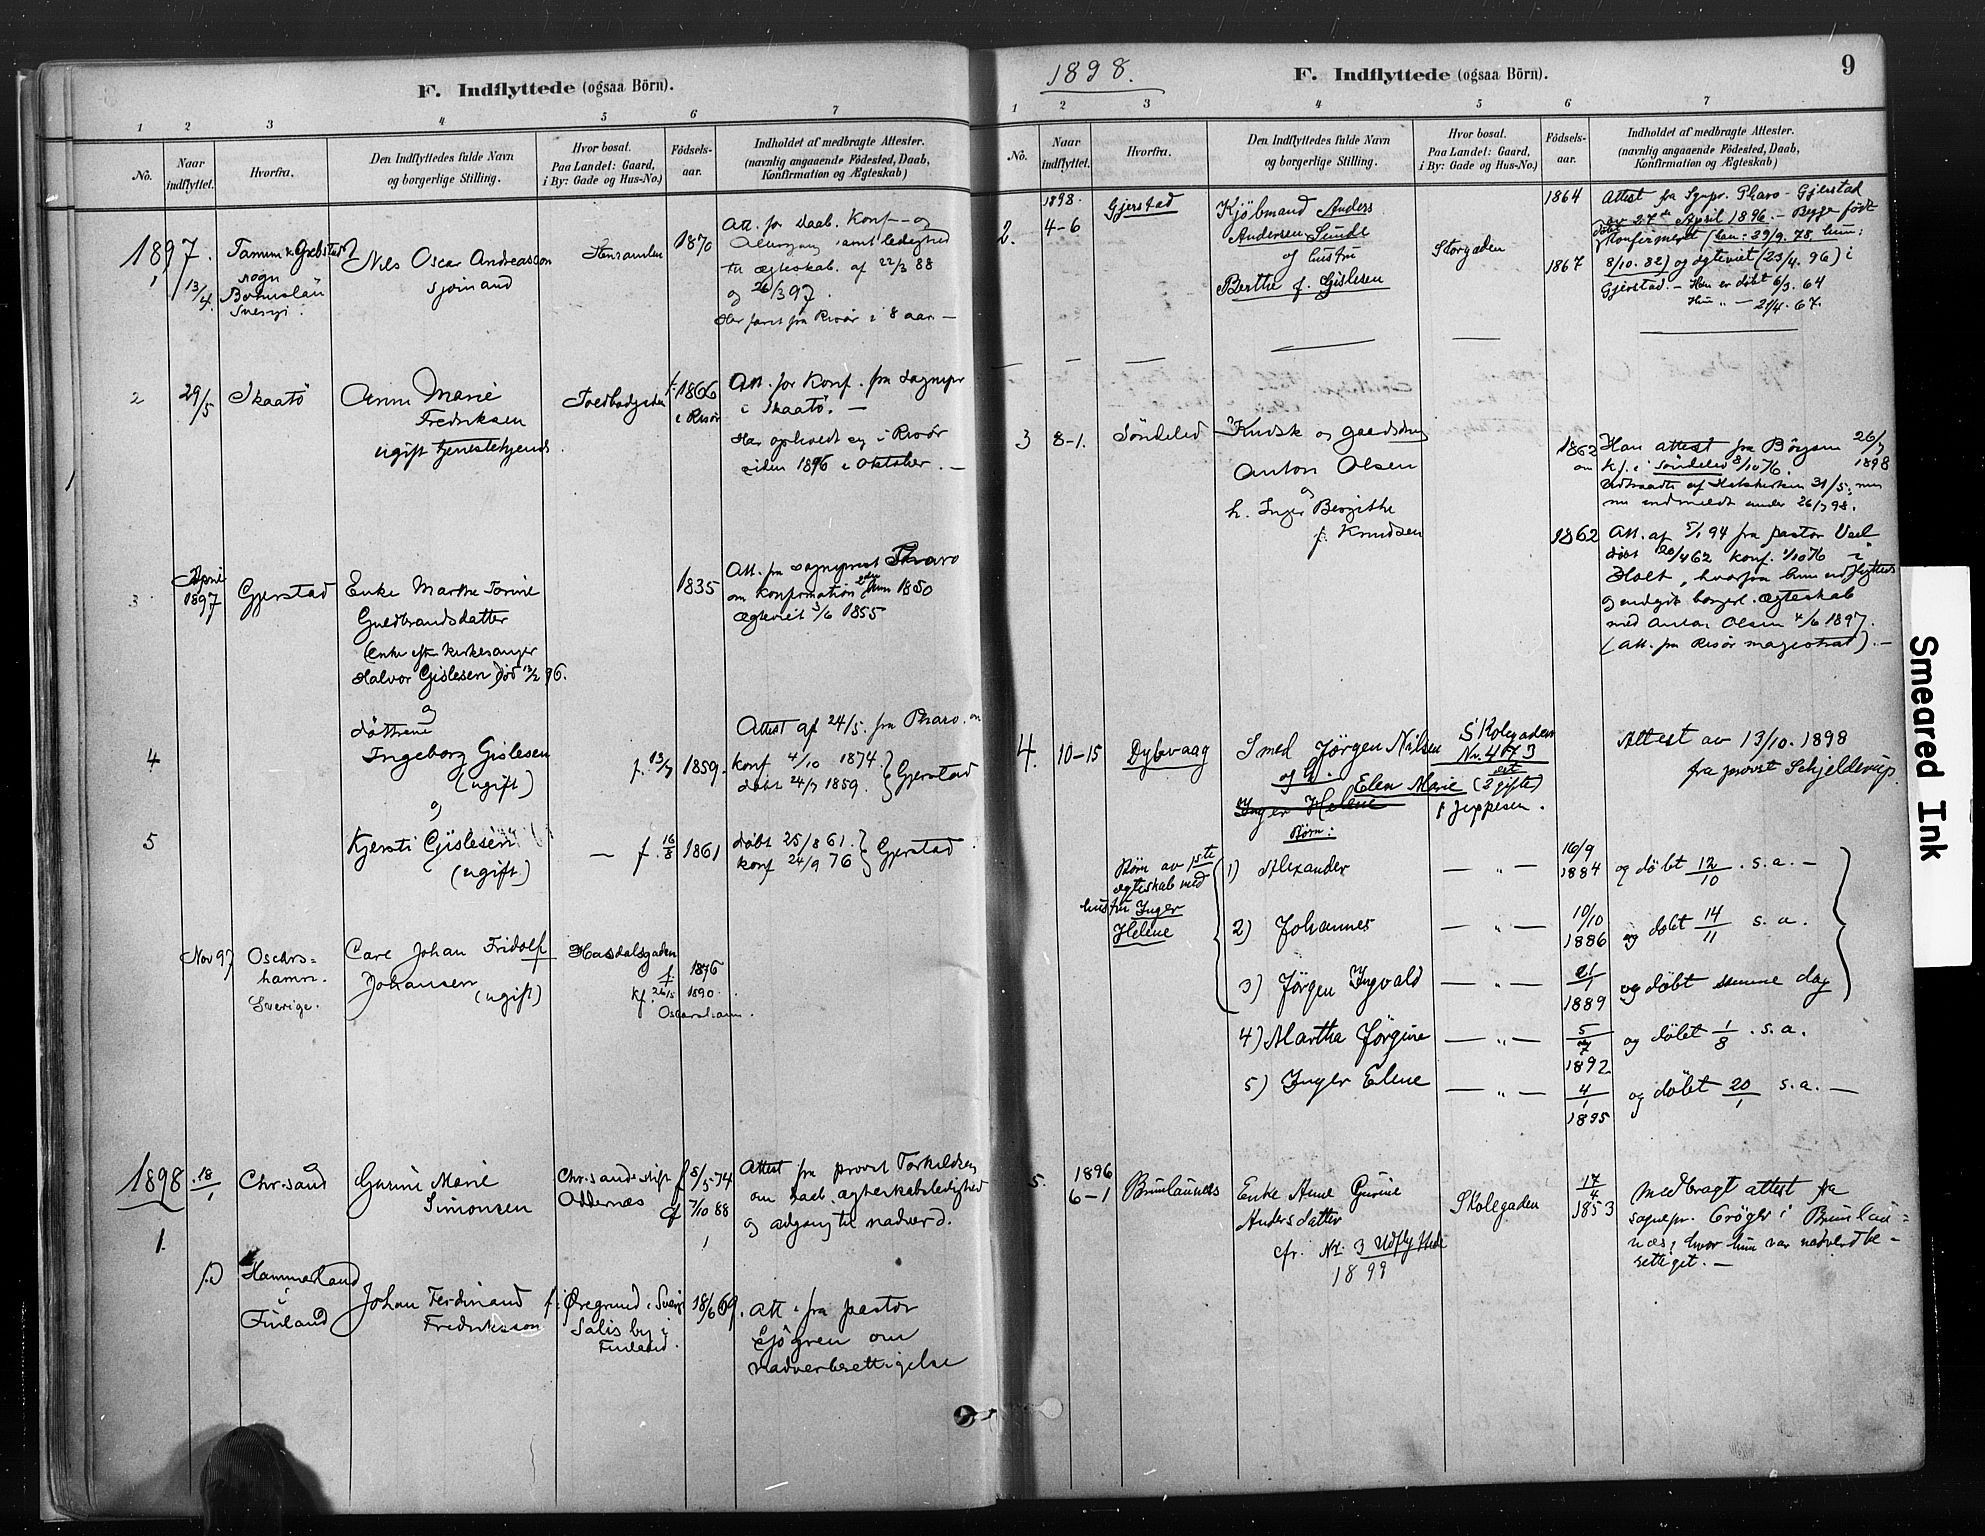 F. Indflyttede (ogsaa Börn).
1 2 3 4 5 6 7
No.
Naar indflyttet.
Hvorfra.
Den Indflyttedes fulde Navn
og borgerlige Stilling.
Hvor bosat.
Paa Landet: Gaard,
i By: Gade og Hus-No.)
Födsels-
aar.
Indholdet af medbragte Attester.
(navnlig angaaende Födested, Daab,
Konfirmation og Ægteskab)
1897.
1
13/4
sogn
Nils Oscar Andreasson
sjömand
1870
Att. for Daab. Konf. og
til ægteskab. af 22/3 88
og 26/3 97.
Har faret fra Risör i 8 aar —
2
29/5
Skaatö
Anne Marie
Fredriksen
ugift tjenestetjende
Toldbodgaden
f. 1866
i Risör
Att. for Konf. fra sognepr
i Skaatö. —
Har opholdt sig i Risör
siden 1896 i Oktober. —
3
April
1897
Gjerstad
Enke Marthe Torine
Guldbrandsdatter
(enke efter kirkesanger
Halvor Gislesen) död 13/2 96.
1835
Att. fra sogneprest Pharo
om konfirmation 1850
ægteviet 3/6 1855
og
döttrene
4
Ingeborg Gislesen
(ugift)
f. 13/7
1859.
Attest af 24/5. fra Pharo. om
konf 4/10 1874.
döbt 24/7 1859.
Gjerstad
og
5
Kjersti Gislesen
(ugift)
— f. 16/8
1861
döbt 25/8 61.
konf 24/9 76
Gjerstad
Nov 97
Oscars=
hamn.
Sverige.
Carl Johan Fridolf
Johansen
(ugift)
Hasdalsgaden
f. 1876
kf. 26/5 1890.
Oscarshamn.
1898
1.
18/1
Chr.sand
Gurine Marie
Simonsen
Chr.sands stift
Oddernæs
f 8/5 74
cf 7/10 88
Attest fra provst Torkildsen
om daab. ægteskabsledighed
og adgang til nadverd.
Hammerland
i
Finland
Johan Ferdinand
Fredriksson
f. Öregrund i Sverig
Salis by i
Finland.
18/6 69.
Att. fra pastor
Sjögren om
nadverberettigelse
1898.
F. Indflyttede (ogsaa Börn).
9
1 2 3 4 5 6 7
No.
Naar
indflyttet.
Hvorfra.
Den Indflyttedes fulde Navn
og borgerlige Stilling.
Hvor bosat.
Paa Landet: Gaard,
i By: Gade og Hus-No.)
Födsels-
aar.
Indholdet af medbragte Attester.
(navnlig angaaende Födested, Daab,
Konfirmation og Ægteskab)
2.
1898.
4-6
Gjerstad
Kjöbmand Anders
Andersen Sunde
og hustru
Berthe f. Gislesen
Storgaden
1864
1867
Attest fra Sognpr. Pharo - Gjerstad
av 27de April 1896. — Begge födt
döbt
Konfirmeret (han: 29/9. 78, hun:
8/10. 82) og ægteviet (23/4. 96) i
Gjerstad. — Han er döbt 6/3. 64
Hun " — 21/4. 67.
3
8-1.
Söndeled
Kudsk og gaardsdreng
Anton Olsen
og
h. Inger Bergithe
f. Knudsen
1862
Han attest fra Börjesen 26/7 1898
kf. i Söndeled 8/10 76.
Udtraadte af Statskirken 31/5, men
nu indmeldt under 26/7 98.
1862
Att. af 5/1 94 fra pastor
döbt 20/4 62 konf. 1/10 76 i
Holt, hvorfra hun udflyttede
og indgik borgerl. ægteskab
med Anton Olsen 4/6 1897.
(att. fra Risör magistrat). —
4.
10-15
Dybvaag
Smed Jörgen Nilsen
og h.
Elen Marie (2 gifte)
Inger Helene
f. Jeppesen.
Börn:
Skolegaden
Nr. 473
Attest av 13/10. 1898
fra provst Schjelderup
Börn av 1ste
ægteskab med
hustru Inger
Helene
1) Alexander — " —
16/9
1884
og döbt 12/10. s.a. —
2) Johannes — " —
10/10
1886
og döbt 14/11 s.a.
3) Jörgen Ingvald — " —
21/1
1889
og döbt samme dag
4) Martha Jörgine — " —
5/7
1892
og döbt 1/8. s.a.
5) Inger Elene — " —
4/1
1895
og döbt 20/1 s.a. —
5.
1896
6-1
Brunlaunæs
Enke Anne Gurine
Andersdatter
cfr. Nr. 3 Udflyttede
1899
Skolegaden
17/4
1853
Medbragt attest fra
sognepr. Cröger i Brunlau=
næs, hvor hun var nadverdbe-
rettiget. —
Smeared Ink